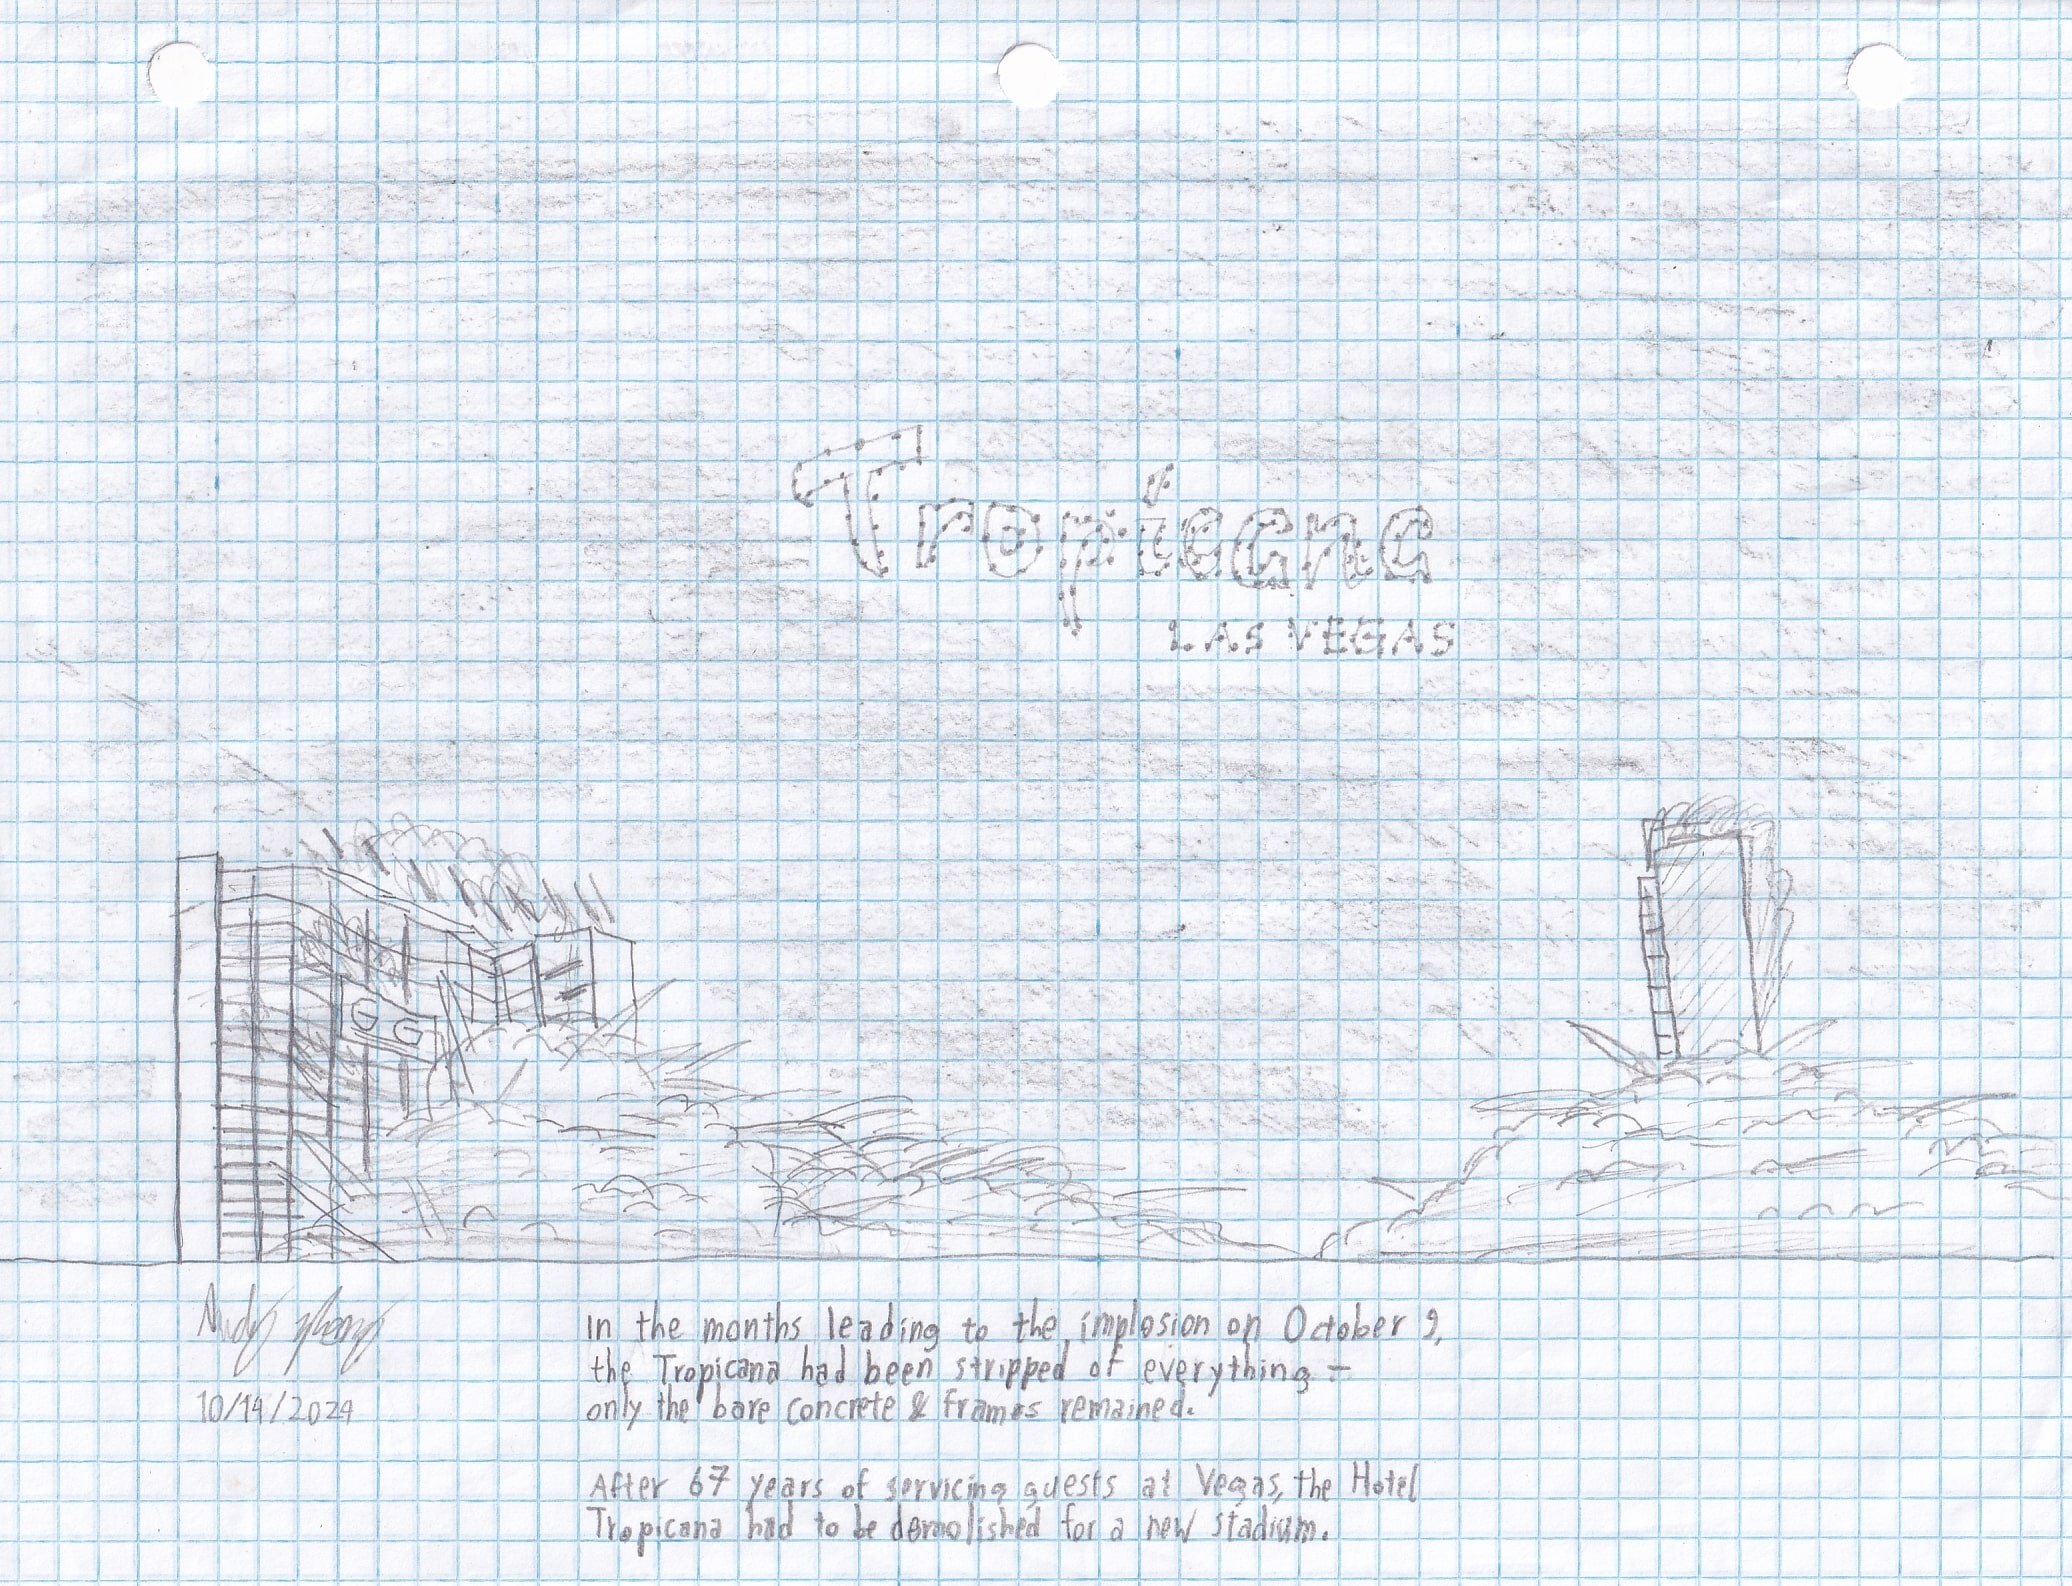 Tropicana
LAS VEGAS
Andy
10/14/2024
In the months leading to the implosion on October 9,
the Tropicana had been stripped of everything –
only the bare concrete & frames remained.
After 67 years of servicing guests at Vegas, the Hotel
Tropicana had to be demolished for a new stadium.